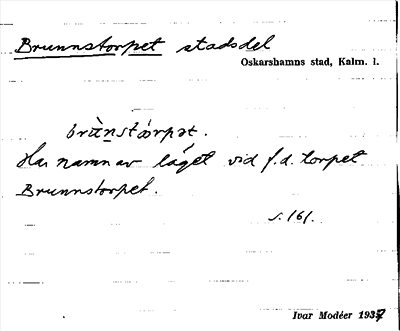 Brunnstorpet stadsdel
Oskarshamns stad, Kalm. l.
brùnstórpət.
Har namn av läget vid f.d. torpet
Brunnstorpet.
s. 161.
Ivar Modéer 1937